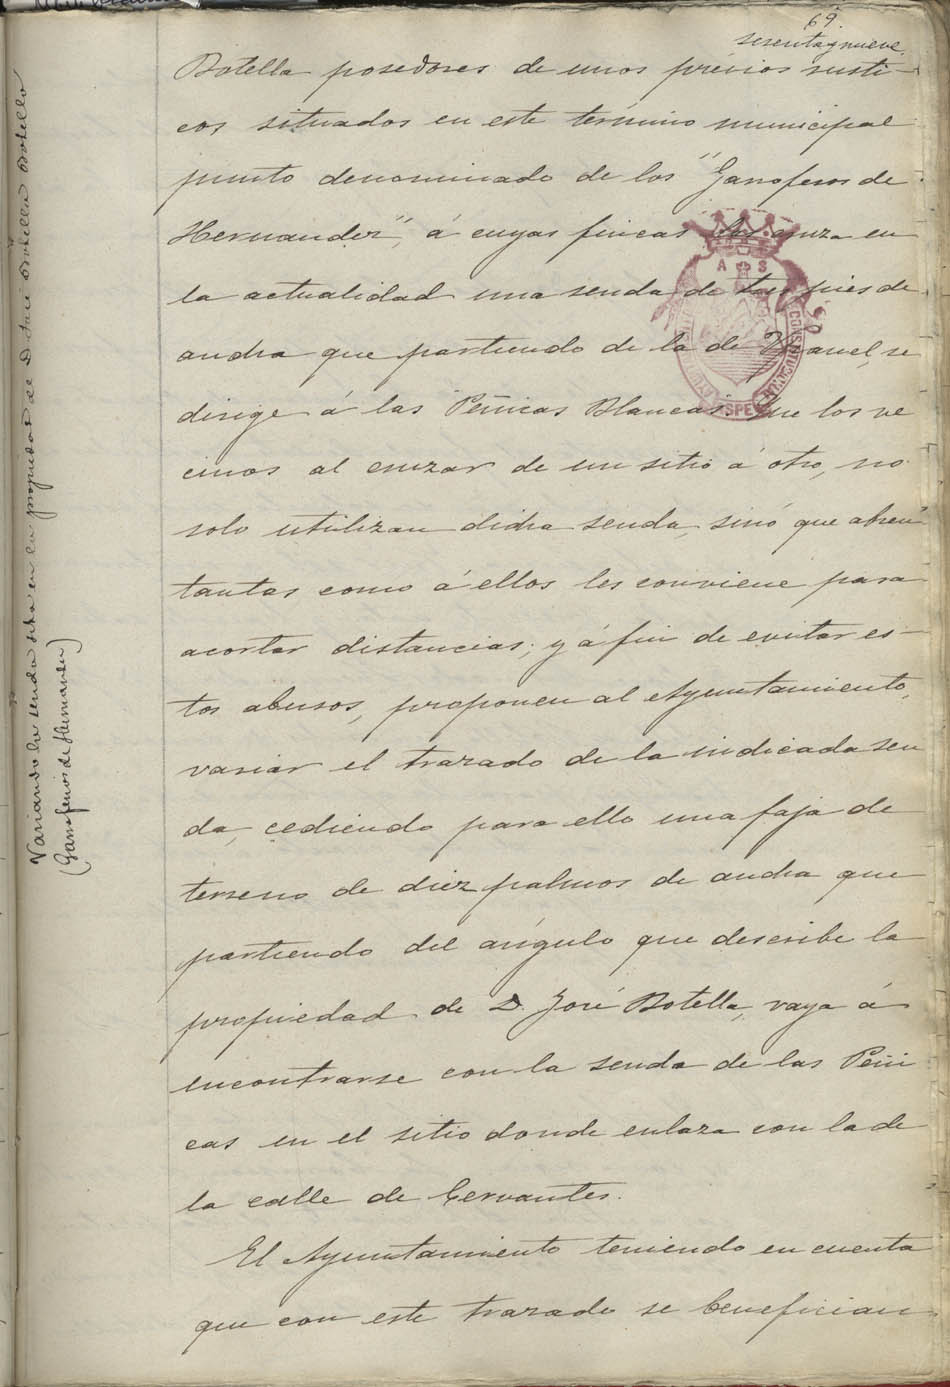 69.
sesenta y nueve.
Botella posedores de unos prévios rusti-
cos situados en este término municipal
punto denominado de los "Garroferos de
Hernandez", á cuyas fincas las cruza en
la actualidad una senda de tres pies de
ancha que partiendo de la de se
dirige á las Peñicas Blancas. Que los ve
cinos al cruzar de un sitio á otro, no
solo utilizan dicha senda, sinó que abren
tantas como á ellos les conviene para
acortar distancias; y á fin de evitar es-
tos abusos, proponen al Ayuntamiento,
variar el trazado de la indicada sen
da, cediendo para ello una faja de
terreno de diez palmos de ancha que
partiendo del angulo que describe la
propiedad de D. José Botella, vaya á
encontrarse con la senda de las Peñi
cas en el sitio donde enlaza con la de
la calle de Cervantes.
El Ayuntamiento teniendo en cuenta
que con este trazado se benefician
Variando la senda sita en la propiedad de D. José Botella Botella
(Garroferos de Hernandez)
A S
CONSTITUCIONAL
ASPE